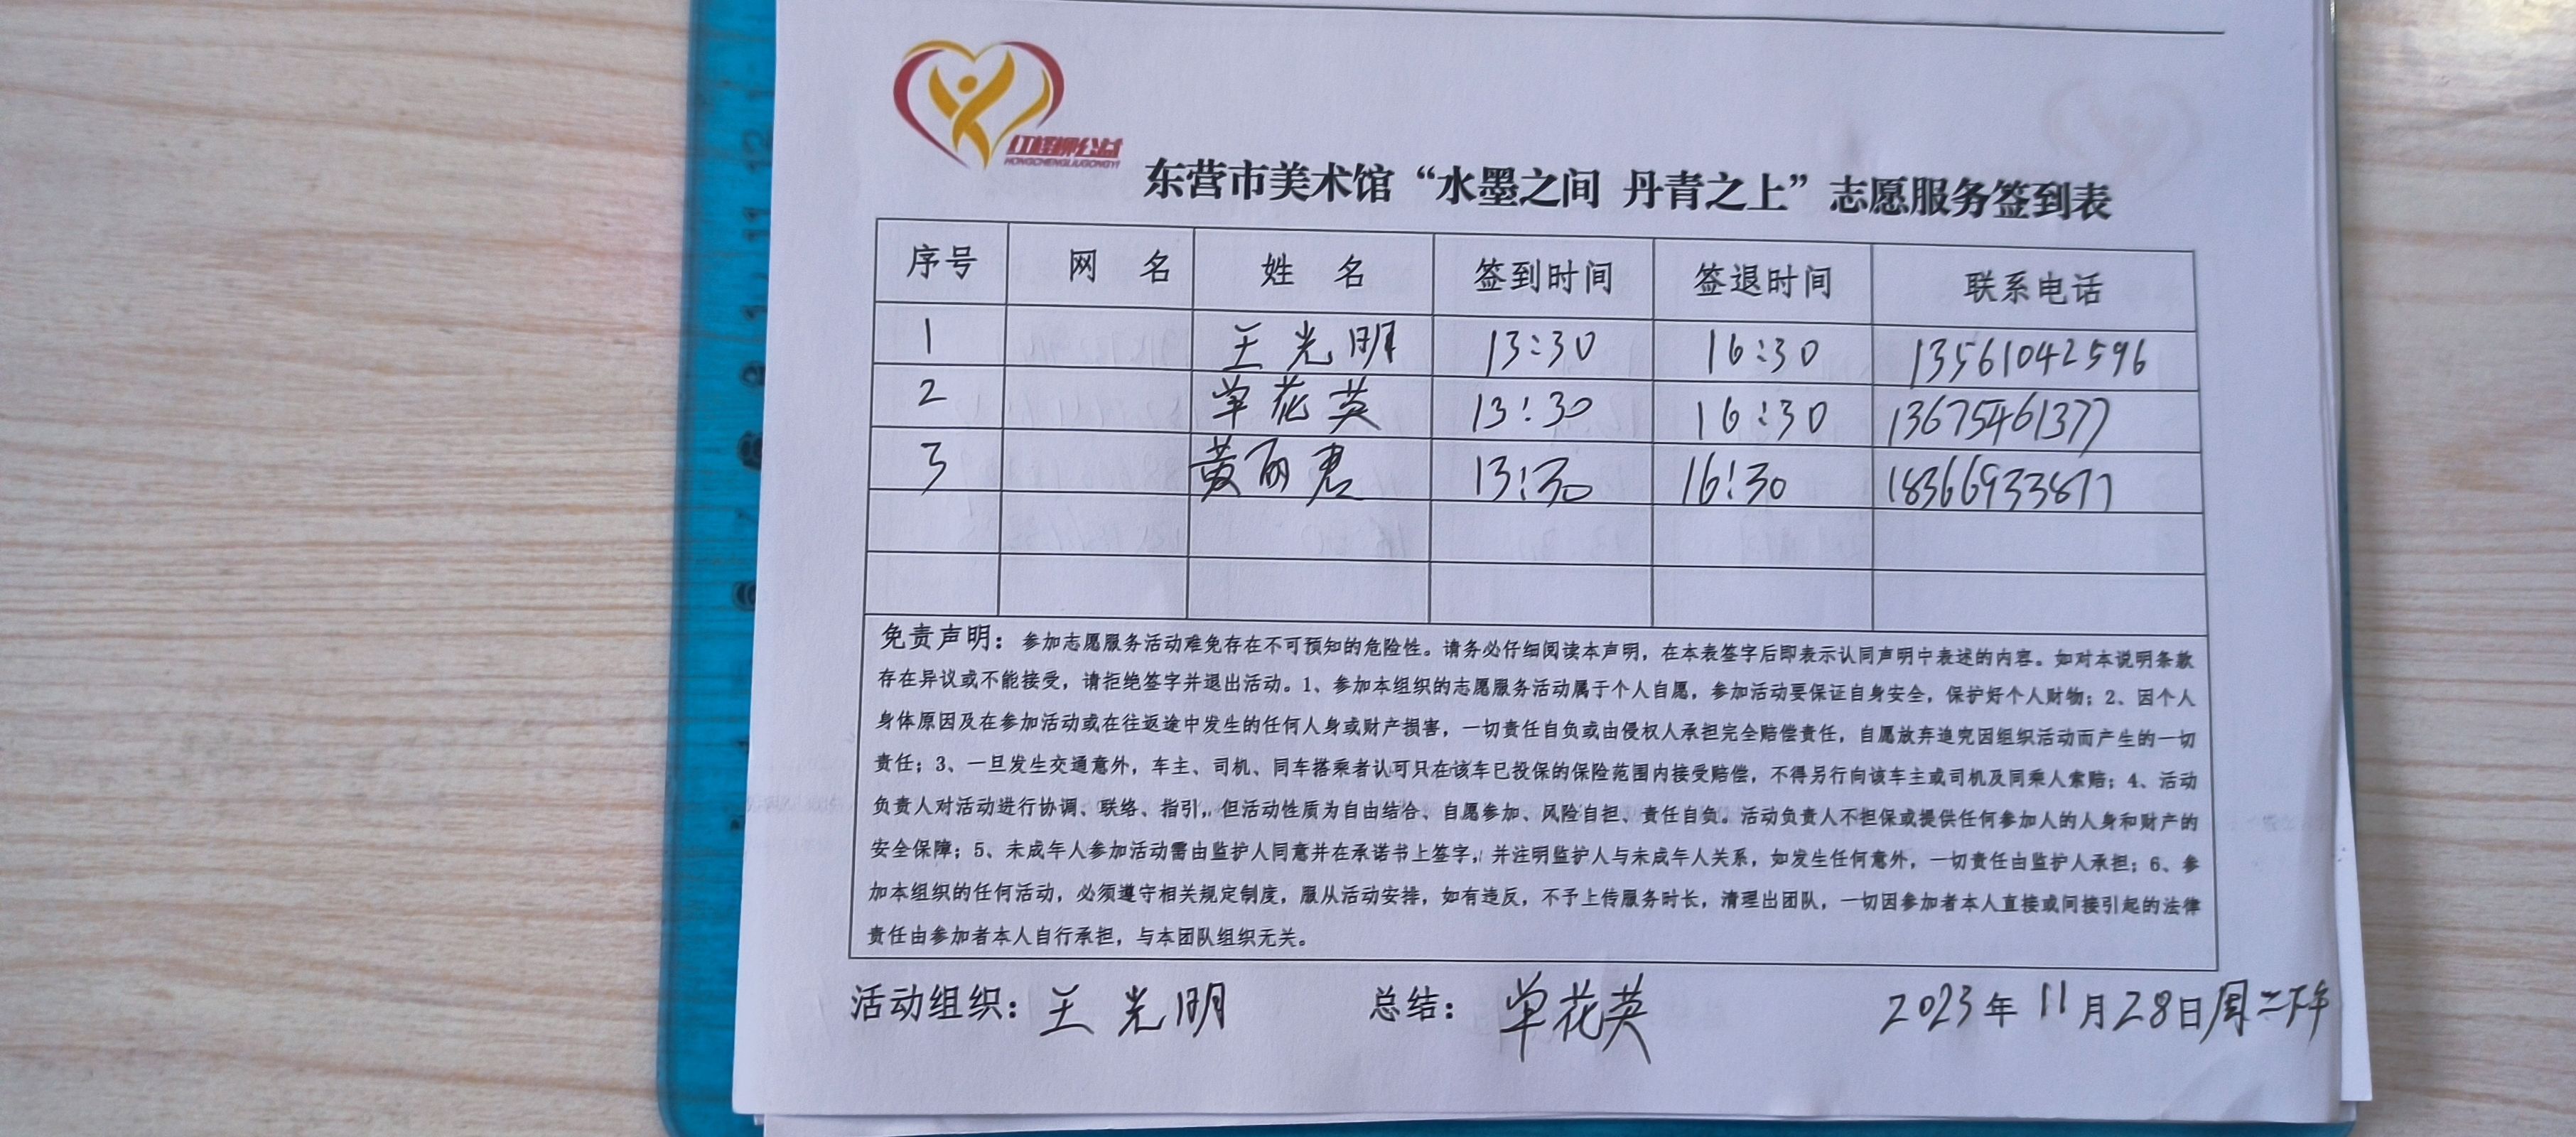 红柽柳公益
HONGCHENGLIUGONGYI
东营市美术馆“水墨之间 丹青之上”志愿服务签到表
序号 网 名 姓 名 签到时间 签退时间 联系电话
1 王光明 13:30 16:30 13561042596
2 单花英 13:30 16:30 13675461377
3 黄丽君 13:30 16:30 18366933877
免责声明：参加志愿服务活动难免存在不可预知的危险性。请务必仔细阅读本声明，在本表签字后即表示认同声明中表述的内容。如对本说明条款
存在异议或不能接受，请拒绝签字并退出活动。1、参加本组织的志愿服务活动属于个人自愿，参加活动要保证自身安全，保护好个人财物；2、因个人
身体原因及在参加活动或在往返途中发生的任何人身或财产损害，一切责任自负或由侵权人承担完全赔偿责任，自愿放弃追究因组织活动而产生的一切
责任；3、一旦发生交通意外，车主、司机、同车搭乘者认可只在该车已投保的保险范围内接受赔偿，不得另行向该车主或司机及同乘人索赔；4、活动
负责人对活动进行协调、联络、指引，但活动性质为自由结合、自愿参加、风险自担、责任自负。活动负责人不担保或提供任何参加人的人身和财产的
安全保障；5、未成年人参加活动需由监护人同意并在承诺书上签字，并注明监护人与未成年人关系，如发生任何意外，一切责任由监护人承担；6、参
加本组织的任何活动，必须遵守相关规定制度，服从活动安排，如有违反，不予上传服务时长，清理出团队，一切因参加者本人直接或间接引起的法律
责任由参加者本人自行承担，与本团队组织无关。
活动组织：王光明 总结：单花英 2023年11月28日周二下午